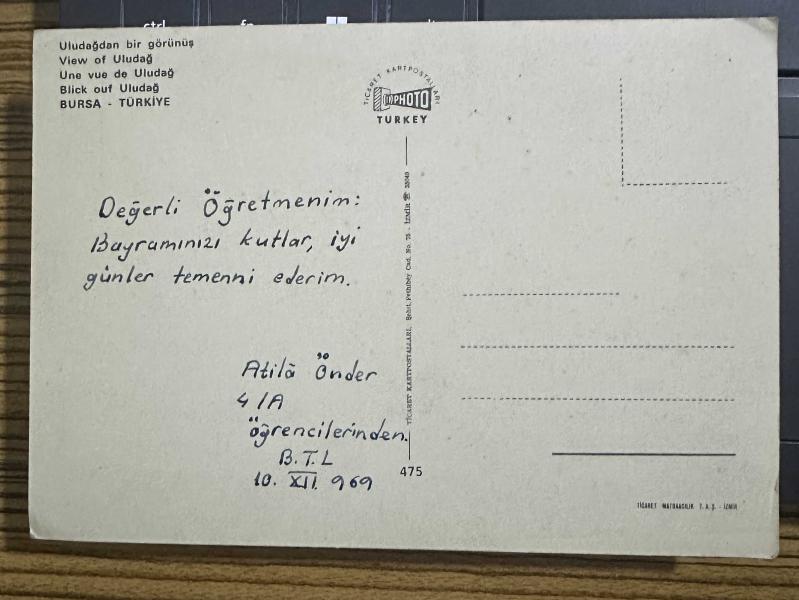 ctrl
fn
Uludağdan bir görünüş
View of Uludağ
Une vue de Uludağ
Blick ouf Uludağ
BURSA - TÜRKİYE
TİCARET KARTPOSTALLARI
PHOTO
TURKEY
Değerli Öğretmenim:
Bayramınızı kutlar, iyi
günler temenni ederim.
Atilâ Önder
4/A
öğrencilerinden.
B.T.L
10. XII. 969
TİCARET KARTPOSTALLARI. Şehit. Fethibey Cad. No. 75 - İZMİR
475
TİCARET MATBAACILIK T.A.Ş. - İZMİR